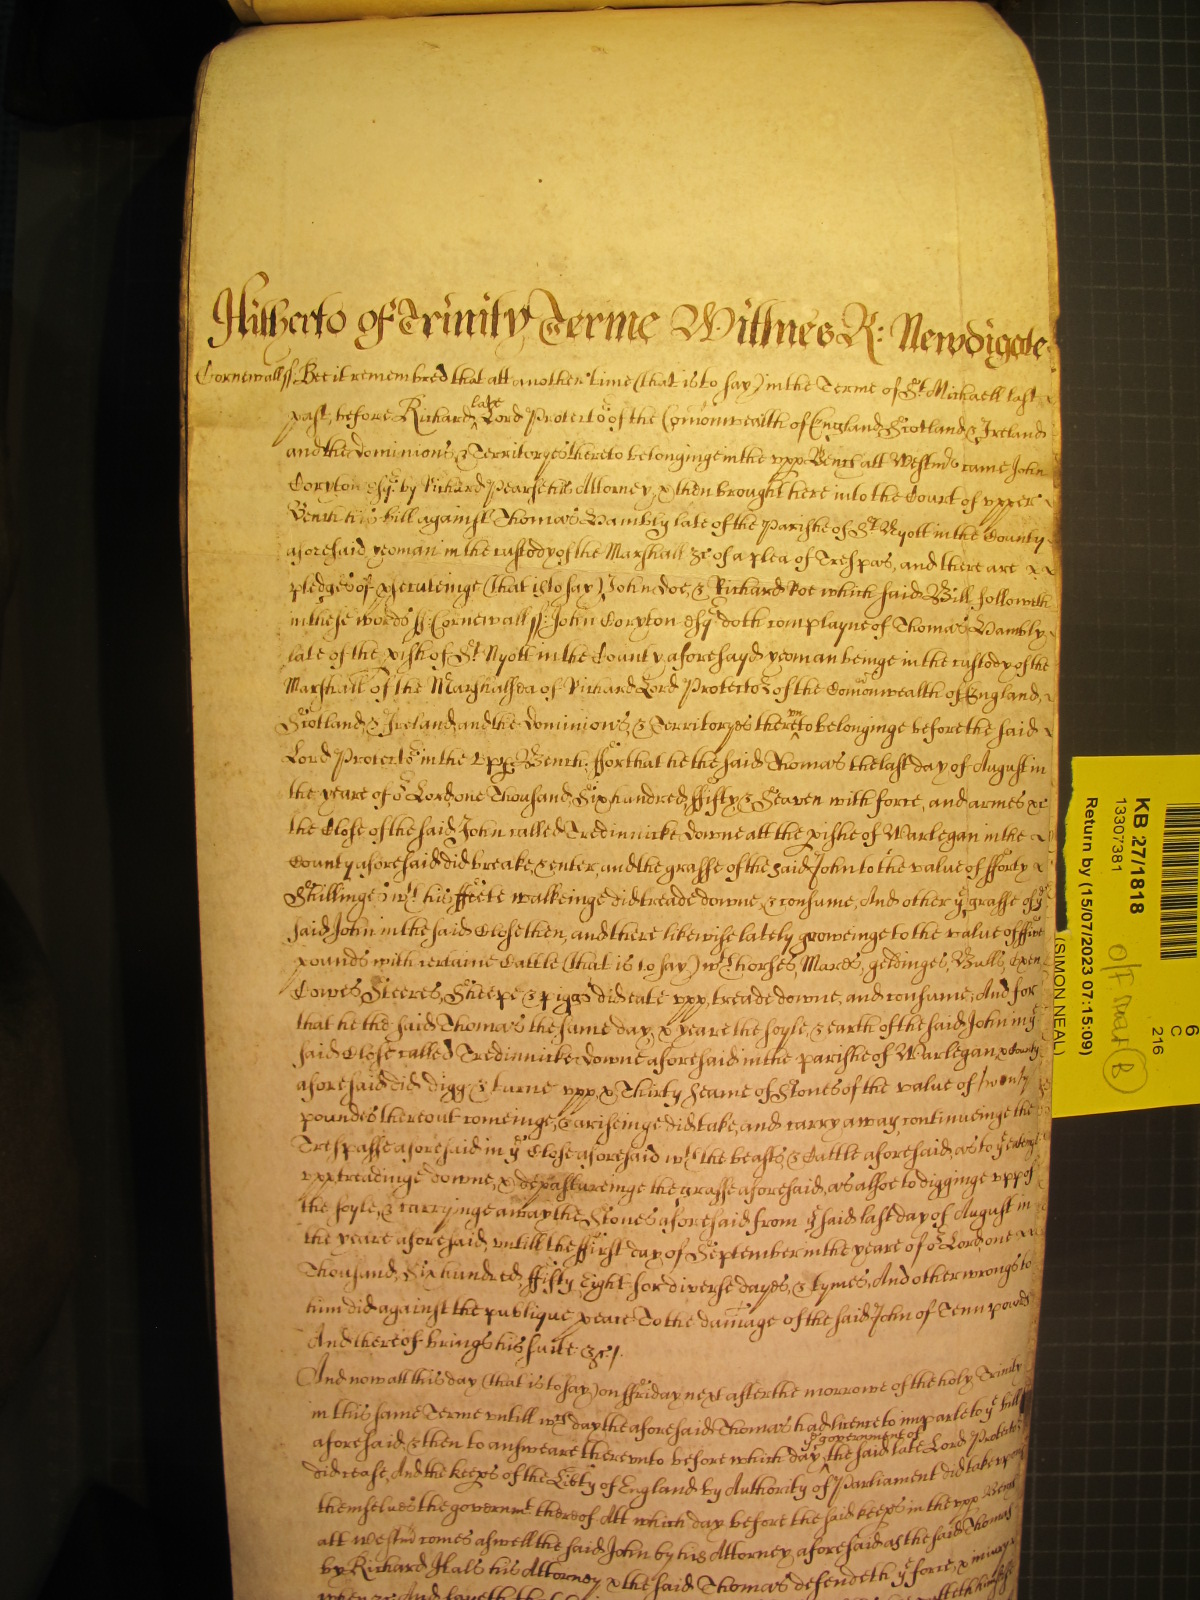 Hitherto of Trinity Terme Wittnes R: Newdigate
Cornewall ss: Bee it remembred that att another time (that is to say) in the Terme of St Michaell last
past, before Richard late Lord Protector of the Comonwealth of England, Scotland, & Ireland
and the dominions, & Territoryes thereto belonginge in the upp Bench att Westmr came John
Coryton Esqr by Richard Pearse his Attorney, & then brought here into the Court of upper
Bench his bill against Thomas Hambly late of the Parishe of St Nyott in the County
aforesaid yeoman in the custody of the Marshall &c of a plea of Trespas, and there are
pledges of psecuteinge (that is to say) John doe, & Richard Roe which said Bill followeth
in these words ss: Cornewall ss: John Coryton Esqr doth complayne of Thomas Hambly
late of the pish of St Nyott in the County aforesayd yeoman beinge in the custody of the
Marshall of the Marshallsea of Richard Lord Protector of the Comonwealth of England,
Scotland, & Ireland, and the dominions, & Territoryes thereunto belonginge before the said
Lord Protector in the Upp Bench, ffor that he the said Thomas the last day of August in
the yeare of or Lord, one Thousand, Six hundred, ffifty, & Seaven with force, and armes &c
the Close of the said John called Tredinnicke downe att the pishe of Warlegan in the
County aforesaid did breake, & enter, and the grasse of the said John to the value of fforty
Shillinges wth his ffeete walkeinge did treade downe, & consume, And other ye grasse of ye
said John in the said Close then, and there likewise lately groweinge to the value of ffive
pounds with certaine Cattle (that is to say) wth horses, Mares, geldinges, Bulls, Oxen
Cowes, Steeres, Sheepe, & piggs did eate upp, treade downe, and consume, And for
that he the said Thomas the same day, & yeare the soyle, & earth of the said John in ye
said Close called Tredinnicke downe aforesaid in the parishe of Warlegan & County
aforesaid did digg, & turne upp, & Thirty Seame of Stones of the value of twenty
poundes thereout comeinge, & ariseinge did take, and carry away, continueinge the
Trespasse aforesaid in ye Close aforesaid wth the beasts, & Cattle aforesaid, as to ye eateinge
upp treadinge downe, & depastureinge the grasse aforesaid, as alsoe to digginge upp of
the soyle, & carryinge away the Stones aforesaid from ye said last day of August in
the yeare aforesaid, untill the ffirst day of September in the yeare of or Lord one
Thousand, Six hundred, ffifty Eight for diverse dayes, & tymes, And other wrongs to
him did against the publique peace To the damage of the said John of Tenn pounds
And thereof brings his suite &c/.
And now att this day (that is to say) on ffriday next after the morrowe of the holy Trinity
in this same Terme untill wch day the aforesaid Thomas had licence to imparle to ye bill
aforesaid, & then to answeare thereunto before which day ye government of the said late Lord Protector
did cease, And the keeps of the Liberty of England by Authority of Parliament did take upon
themselves the governmt thereof Att which day before the said keeps in the upp Bench
att Westmr comes aswell the said John by his Attorney aforesaid as the said Thomas
by Richard Hals his Attorney & the said Thomas defendeth ye force, & iniury
when &c And sayeth that
KB 27/1818
13307381
Return by (15/07/2023 07:15:09)
(SIMON NEAL)
6
C
216
B